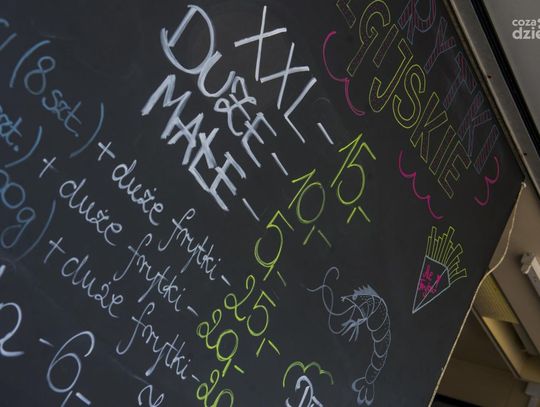 FRYTKI
BELGIJSKIE
XXL - 15,-
DUŻE - 10,-
MAŁE - 5,-
(8 szt.) + duże frytki - 25,-
szt.) + duże frytki - 20,-
00g) + duże frytki - 20,-
2 - 6,-
coza
dzie